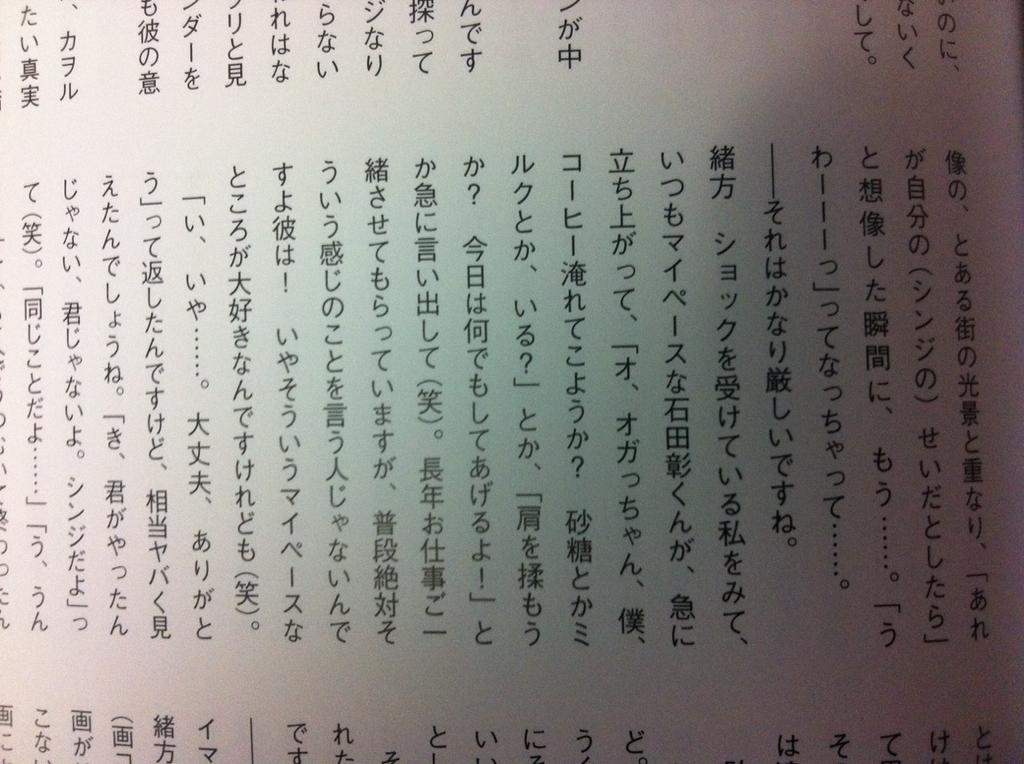 いのに、
ないく
して。
ンが中
んです
探って
ジなり
らない
れはな
リと見
ンダーを
も彼の意
、カヲル
たい真実
像の、とある街の光景と重なり、「あれ
が自分の(シンジの) せいだとしたら」
と想像した瞬間に、もう……。「う
わーーーっ」ってなっちゃって……。
――それはかなり厳しいですね。
緒方 ショックを受けている私をみて、
いつもマイペースな石田彰くんが、急に
立ち上がって、「オ、オガっちゃん、僕、
コーヒー淹れてこようか? 砂糖とかミ
ルクとか、いる?」とか、「肩を揉もう
か? 今日は何でもしてあげるよ!」と
か急に言い出して(笑)。長年お仕事ご一
緒させてもらっていますが、普段絶対そ
ういう感じのことを言う人じゃないんで
すよ彼は! いやそういうマイペースな
ところが大好きなんですけれども(笑)。
「い、いや……。大丈夫、ありがと
う」って返したんですけど、相当ヤバく見
えたんでしょうね。「き、君がやったん
じゃない、君じゃないよ。シンジだよ」っ
て(笑)。「同じことだよ……」「う、うん
とは
けは
て
そ
は
ど。
うく
にそ
いい
とし
そ
れた
です
イマ
緒方
(画「
画が
こない
画に